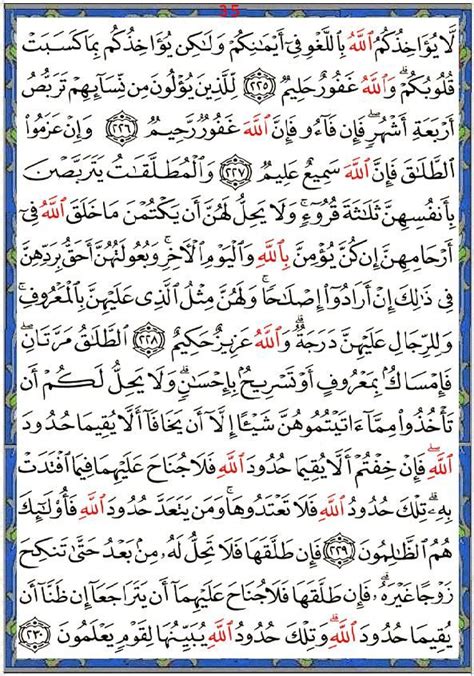 35
لَّا يُؤَاخِذُكُمُ ٱللَّهُ بِٱللَّغْوِ فِىٓ أَيْمَٰنِكُمْ وَلَٰكِن يُؤَاخِذُكُم بِمَا كَسَبَتْ
قُلُوبُكُمْ ۗ وَٱللَّهُ غَفُورٌ حَلِيمٌ ٢٢٥ لِّلَّذِينَ يُؤْلُونَ مِن نِّسَآئِهِمْ تَرَبُّصُ
أَرْبَعَةِ أَشْهُرٍ ۖ فَإِن فَآءُو فَإِنَّ ٱللَّهَ غَفُورٌ رَّحِيمٌ ٢٢٦ وَإِنْ عَزَمُوا۟
ٱلطَّلَٰقَ فَإِنَّ ٱللَّهَ سَمِيعٌ عَلِيمٌ ٢٢٧ وَٱلْمُطَلَّقَٰتُ يَتَرَبَّصْنَ
بِأَنفُسِهِنَّ ثَلَٰثَةَ قُرُوٓءٍ ۚ وَلَا يَحِلُّ لَهُنَّ أَن يَكْتُمْنَ مَا خَلَقَ ٱللَّهُ فِىٓ
أَرْحَامِهِنَّ إِن كُنَّ يُؤْمِنَّ بِٱللَّهِ وَٱلْيَوْمِ ٱلْءَاخِرِ ۚ وَبُعُولَتُهُنَّ أَحَقُّ بِرَدِّهِنَّ
فِى ذَٰلِكَ إِنْ أَرَادُوٓا۟ إِصْلَٰحًا ۚ وَلَهُنَّ مِثْلُ ٱلَّذِى عَلَيْهِنَّ بِٱلْمَعْرُوفِ ۚ
وَلِلرِّجَالِ عَلَيْهِنَّ دَرَجَةٌ ۗ وَٱللَّهُ عَزِيزٌ حَكِيمٌ ٢٢٨ ٱلطَّلَٰقُ مَرَّتَانِ ۖ
فَإِمْسَاكٌۢ بِمَعْرُوفٍ أَوْ تَسْرِيحٌۢ بِإِحْسَٰنٍ ۗ وَلَا يَحِلُّ لَكُمْ أَن
تَأْخُذُوا۟ مِمَّآ ءَاتَيْتُمُوهُنَّ شَيْـًٔا إِلَّآ أَن يَخَافَآ أَلَّا يُقِيمَا حُدُودَ
ٱللَّهِ ۖ فَإِنْ خِفْتُمْ أَلَّا يُقِيمَا حُدُودَ ٱللَّهِ فَلَا جُنَاحَ عَلَيْهِمَا فِيمَا ٱفْتَدَتْ
بِهِۦ ۗ تِلْكَ حُدُودُ ٱللَّهِ فَلَا تَعْتَدُوهَا ۚ وَمَن يَتَعَدَّ حُدُودَ ٱللَّهِ فَأُو۟لَٰٓئِكَ
هُمُ ٱلظَّٰلِمُونَ ٢٢٩ فَإِن طَلَّقَهَا فَلَا تَحِلُّ لَهُۥ مِنۢ بَعْدُ حَتَّىٰ تَنكِحَ
زَوْجًا غَيْرَهُۥ ۗ فَإِن طَلَّقَهَا فَلَا جُنَاحَ عَلَيْهِمَآ أَن يَتَرَاجَعَآ إِن ظَنَّآ أَن
يُقِيمَا حُدُودَ ٱللَّهِ ۗ وَتِلْكَ حُدُودُ ٱللَّهِ يُبَيِّنُهَا لِقَوْمٍ يَعْلَمُونَ ٢٣٠